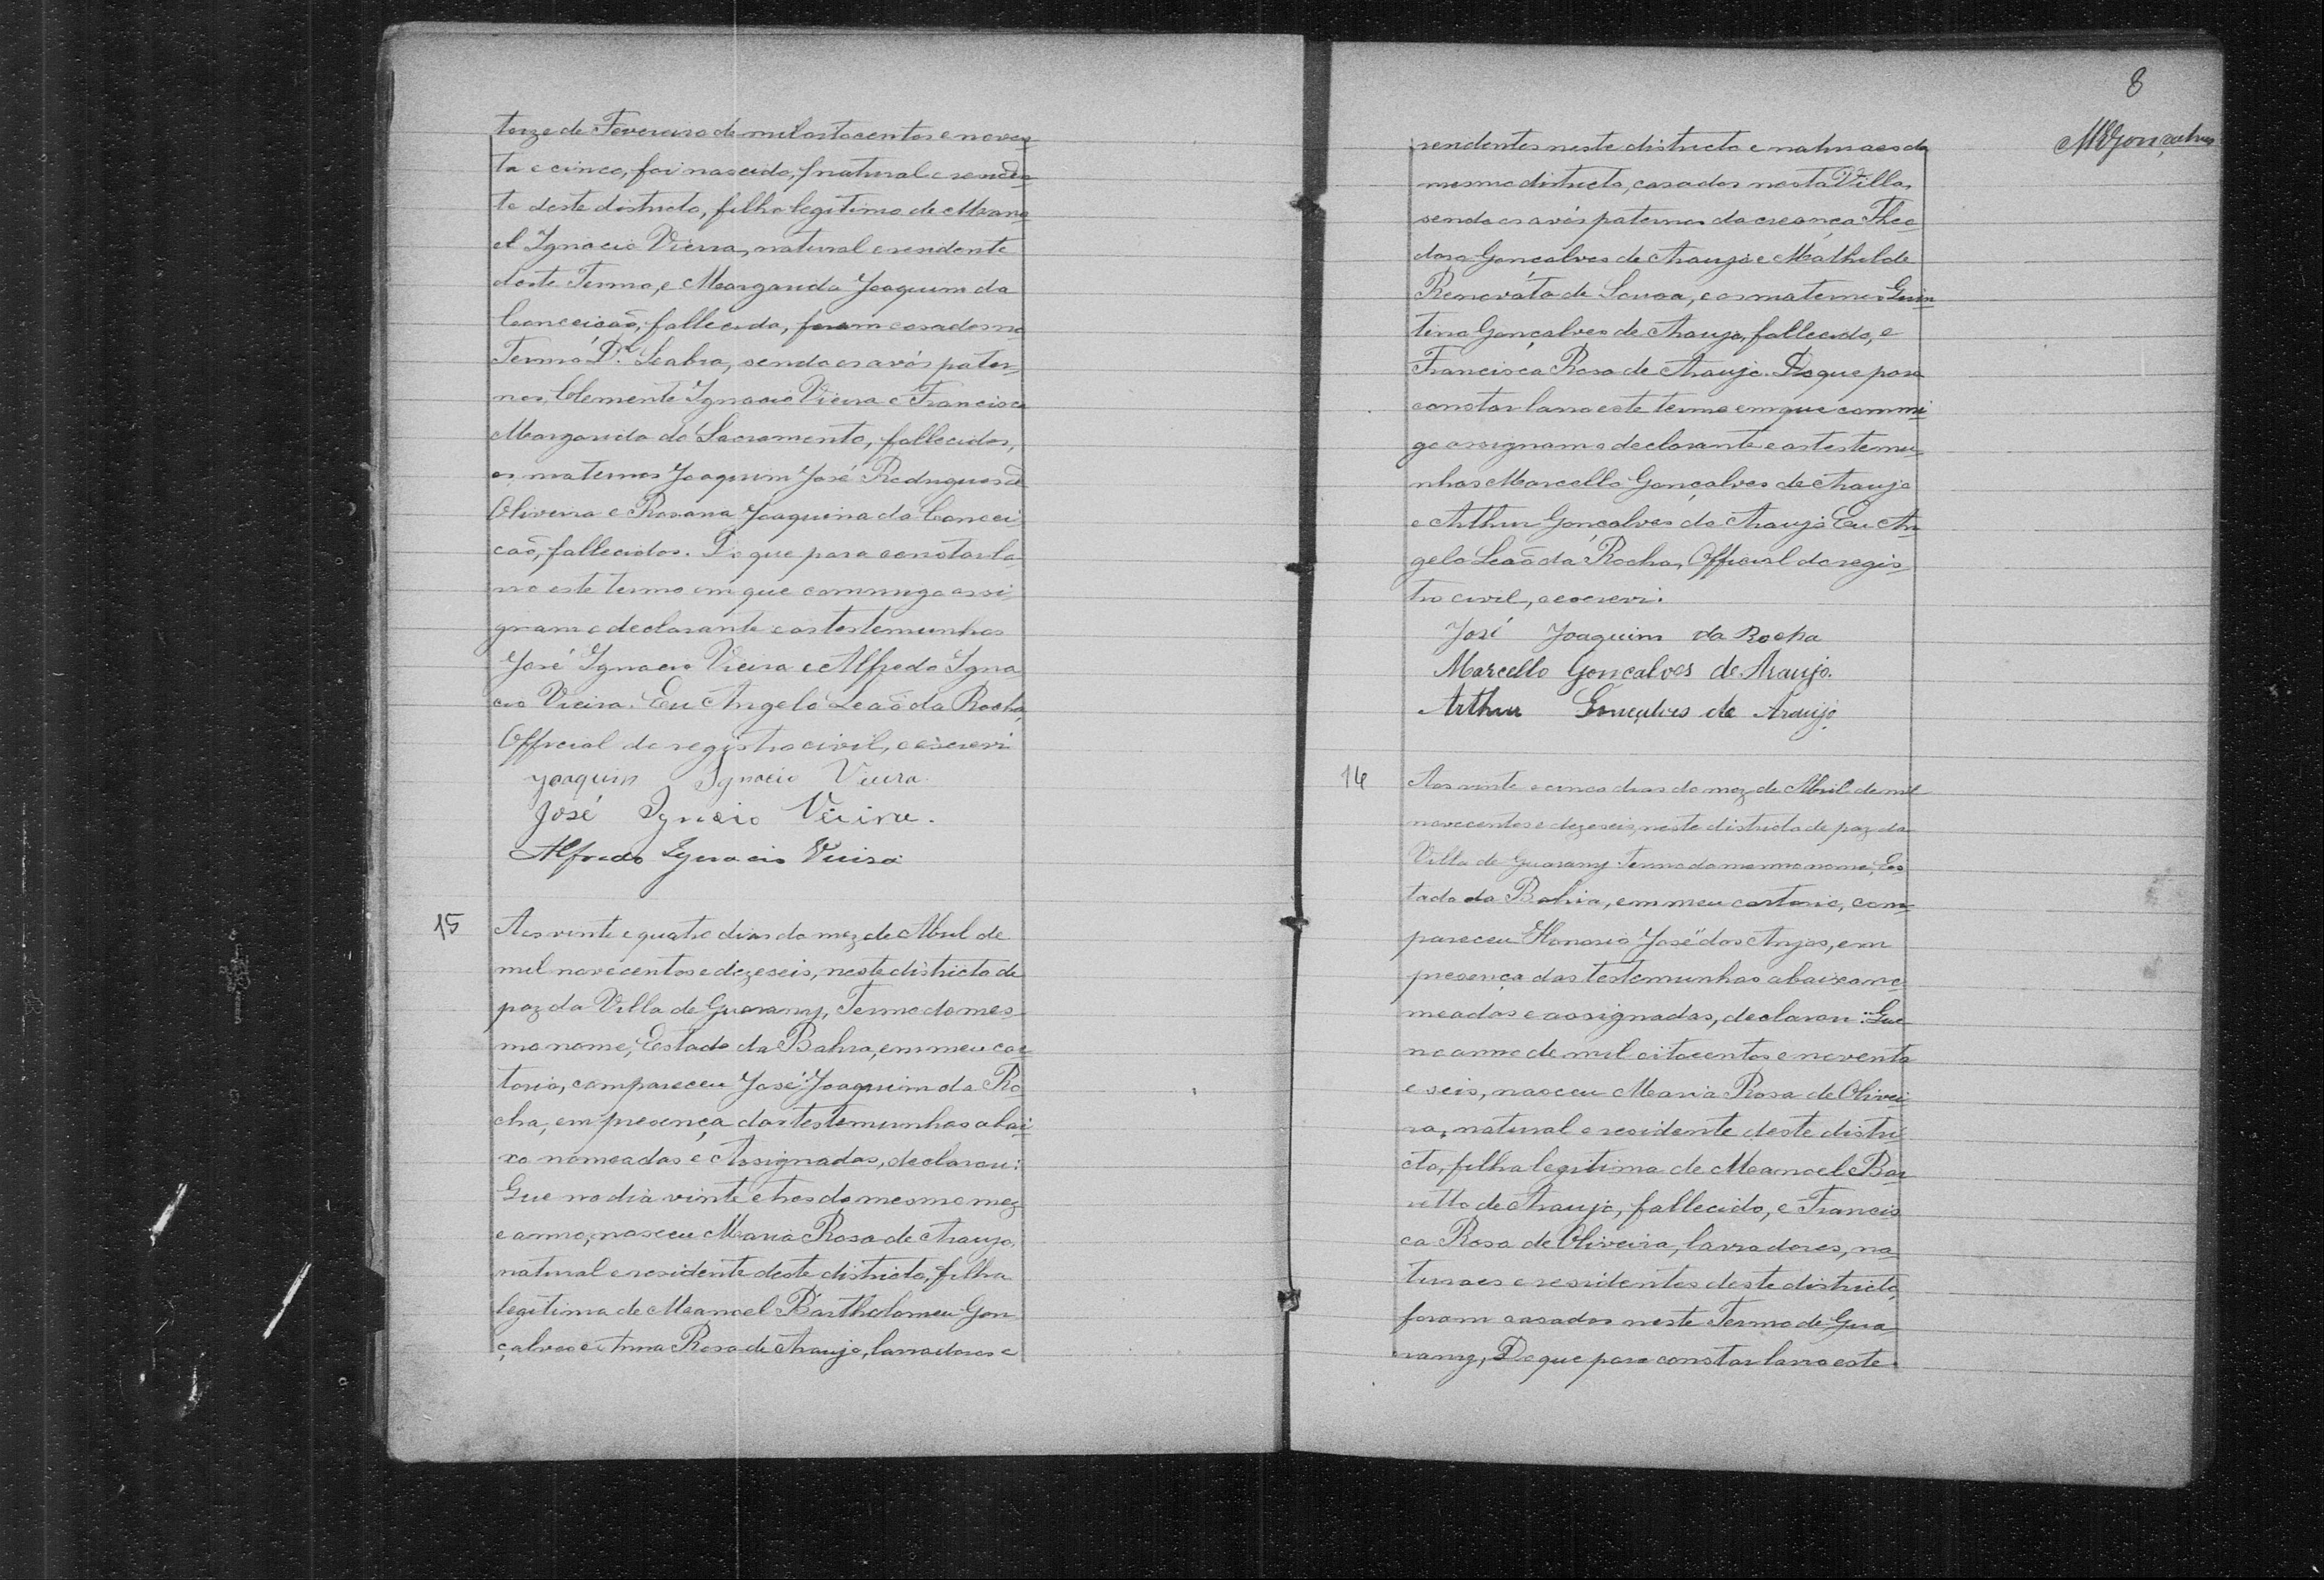 torze de Fevereiro de mil oitocentos e noven
ta e cinco, foi nascido, natural e residen
te deste districto, filho legitimo de Mano
el Ignacio Vieira, natural e residente
deste Termo, e Margarida Joaquim da
Conceicão, fallecida, foram casados no
Termo Dr. Seabra, sendo os avós pater
nos, Clemente Ignacio Vieira e Francisca
Margarida do Sacramento, fallecidos,
os maternos Joaquim José Rodrigues de
Oliveira e Rosana Joaquina da Concei
cão, fallecidos. Do que para constar la
vro este termo em que commigo assi
gnam o declarante e as testemunhas
José Ignacio Vieira e Alfredo Igna
cio Vieira. Eu Angelo Leão da Rocha,
Official do registro civil, o escrevi
Joaquim Ignacio Vieira.
José Ignacio Vieira.
Alfredo Ignacio Vieira
15
Aos vinte e quatro dias do mez de Abril de
mil novecentos e dezeseis, neste districto de
paz da Villa de Guarany, Termo do mes
mo nome, Estado da Bahia, em meu car
torio, compareceu José Joaquim da Ro
cha, em presença das testemunhas abai
xo nomeadas e Assignadas, declarou:
Que no dia vinte e tres do mesmo mez
e anno, nasceu Maria Rosa de Araujo,
natural e residente deste districto, filha
legitima de Manoel Bartholomeu Gon
çalves e Anna Rosa de Araujo, lavradores e
8
MBGonçalves
residentes neste districto e naturaes do
mesmo districto, casados nesta Villa,
sendo os avós paternos da creança Theo
doro Gonçalves de Araujo e Mathilde
Renováta de Souza, e os maternos Quin
tino Gonçalves de Araujo, fallecido, e
Francisca Rosa de Araujo. Do que para
constar lavro este termo em que commi
go assignam o declarante e as testemu
nhas Marcello Gonçalves de Araujo
e Arthur Gonçalves de Araujo Eu An
gelo Leão da Rocha, Official do regis
tro civil, o escrevi.
José Joaquim da Rocha
Marcello Goncalves de Araujo.
Arthur Gonçalves de Araujo
14
Aos vinte e cinco dias do mez de Abril de mil
novecentos e dezeseis, neste districto de paz da
Villa de Guarany Termo do mesmo nome, Es
tado da Bahia, em meu cartorio, com
pareceu Honorio José dos Anjos, em
presença das testemunhas abaixo no
meadas e assignadas, declarou: Que
no anno de mil oitocentos e noventa
e seis, nasceu Maria Rosa de Olivei
ra, natural e residente deste distri
cto, filha legitima de Manoel Bar
retto de Araujo, fallecido, e Francis
ca Rosa de Oliveira, lavradores, na
turaes e residentes deste districto,
foram casados neste Termo de Gua
rany, Do que para constar lavro este